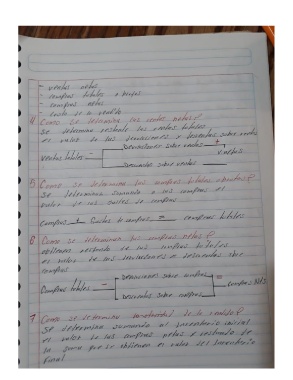 - ventas netas
- compras totales o brutas
- compras netas
- costo de lo vendido
4 Como se determina las ventas netas?
Se determina restando las ventas totales
el valor de las devoluciones y descuentos sobre ventas
Ventas totales - Devoluciones sobre ventas = V.netas
Descuentos sobre ventas
5 Como se determina las compras totales o brutas?
Se determina sumando a las compras el
valor de los gastos de compras
Compras + Gastos de compras = compras totales
6 Como se determinan las compras netas?
Obtienen restando de las compras totales
el valor de las devoluciones y descuentos sobre
compras
Compras totales - Devoluciones sobre compras = compras netas
descuentos sobre compras
7 Como se determina lo vendido?
Se determina sumando al inventario inicial
el valor de las compras netas y restando de
la suma que se obtienen el valor del inventario
final